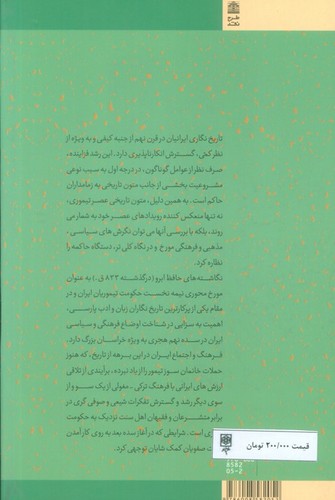 طرح
نقد
تاریخ نگاری ایرانیان در قرن نهم از جنبه کیفی و به ویژه از
نظر کمی، گسترش انکارناپذیری دارد. این رشد فزاینده،
صرف نظر از عوامل گوناگون، در درجه اول به سبب نوعی
مشروعیت بخشی از جانب متون تاریخی به زمامداران
حاکم است. به همین دلیل، متون تاریخی عصر تیموری،
نه تنها منعکس کننده رویدادهای عصر خود به شمار می
روند، بلکه با بررسی آنها می توان نگرش های سیاسی -
مذهبی و فرهنگی مورخ و در نگاه کلی تر، دستگاه حاکمه را
نظاره کرد.
نگاشته‌های حافظ ابرو (درگذشته ۸۳۳ ق.) به عنوان
مورخ محوری نیمه نخست حکومت تیموریان ایران و در
مقام یکی از پرکارترین تاریخ نگاران زبان و ادب پارسی،
اهمیت به سزایی در شناخت اوضاع فرهنگی و سیاسی
ایران در سده نهم هجری به ویژه خراسان بزرگ دارد.
فرهنگ و اجتماع ایران در این برهه از تاریخ، که هنوز
حملات خانمان سوز تیمور را از یاد نبرده، برآیندی از تلاقی
ارزش های ایرانی با فرهنگ ترکی - مغولی از یک سو و از
سوی دیگر رشد و گسترش تفکرات شیعی و صوفی گری در
برابر متشرعان و فقیهان اهل سنت نزدیک به حکومت
ی است. شرایطی که در آغاز سده بعد به روی کار آمدن
ت صفویان کمک شایان توجهی کرد.
قیمت ۳۰۰/۰۰۰ تومان